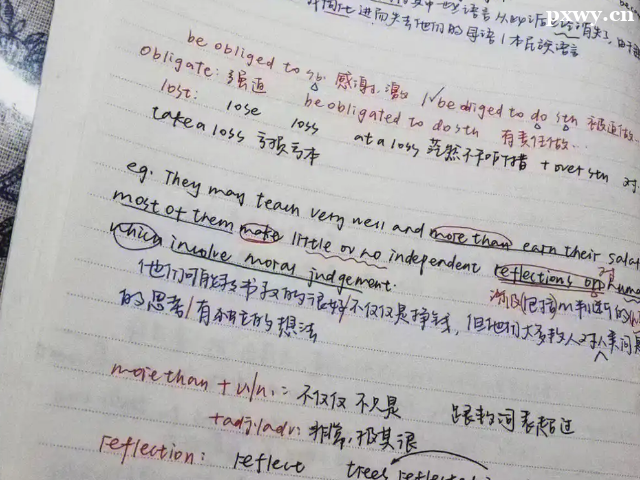 pxwy.cn
进而失去他们的母语/本民族语言
be obliged to sb. 感谢, 激 be obliged to do sth 被迫做...
obligate: 强迫 be obligated to do sth 有责任做...
lost: lose loss
take a loss 亏损亏本 at a loss 茫然不知所措 + over sth 对
eg. They may teach very well and more than earn their salar
most of them make little or no independent reflections on huma
which involve moral judgement. 对
他们可能教书教的很好/不仅仅是挣钱, 但他们大多数人对人类问题
的思考/有独立的想法
more than + v/n.: 不仅仅 不只是 跟数词表超过
+adj/adv: 非常, 极其很
reflection: reflect trees reflected